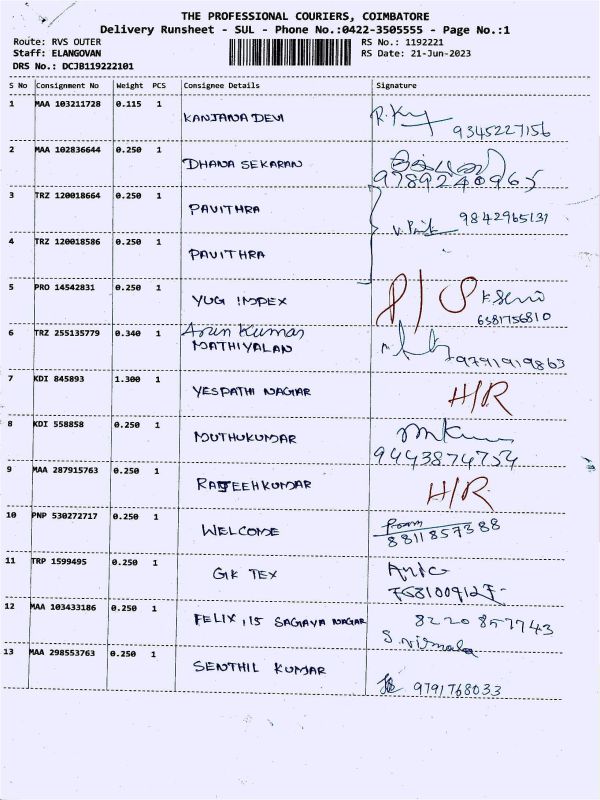 THE PROFESSIONAL COURIERS, COIMBATORE
Delivery Runsheet - SUL - Phone No.:0422-3505555 - Page No.:1
Route: RVS OUTER RS No.: 1192221
Staff: ELANGOVAN RS Date: 21-Jun-2023
DRS No.: DCJB119222101
S No Consignment No Weight PCS Consignee Details Signature
1 MAA 103211728 0.115 1 KANJANA DEVI
9345227156
2 MAA 102836644 0.250 1 DHANA SEKARAN
9789240965
3 TRZ 120018664 0.250 1 PAVITHRA
9842965131
4 TRZ 120018586 0.250 1 PAVITHRA
5 PRO 14542831 0.250 1 YUG IMPEX P/S
6381756810
6 TRZ 255135779 0.340 1 Arun Kumar
MATHIYALAN
9791919863
7 KDI 845893 1.300 1 YESPATHI NAGAR H/R
8 KDI 558858 0.250 1 MUTHUKUMAR
9443874754
9 MAA 287915763 0.250 1 RANJEEHKUMAR H/R
10 PNP 530272717 0.250 1 WELCOME
8811857388
11 TRP 1599495 0.250 1 GIK TEX
12 MAA 103433186 0.250 1 FELIX, 15 SAGAYA NAGAR 8220857743
S. Nirmala
13 MAA 298553763 0.250 1 SENTHIL KUMAR
9791768033